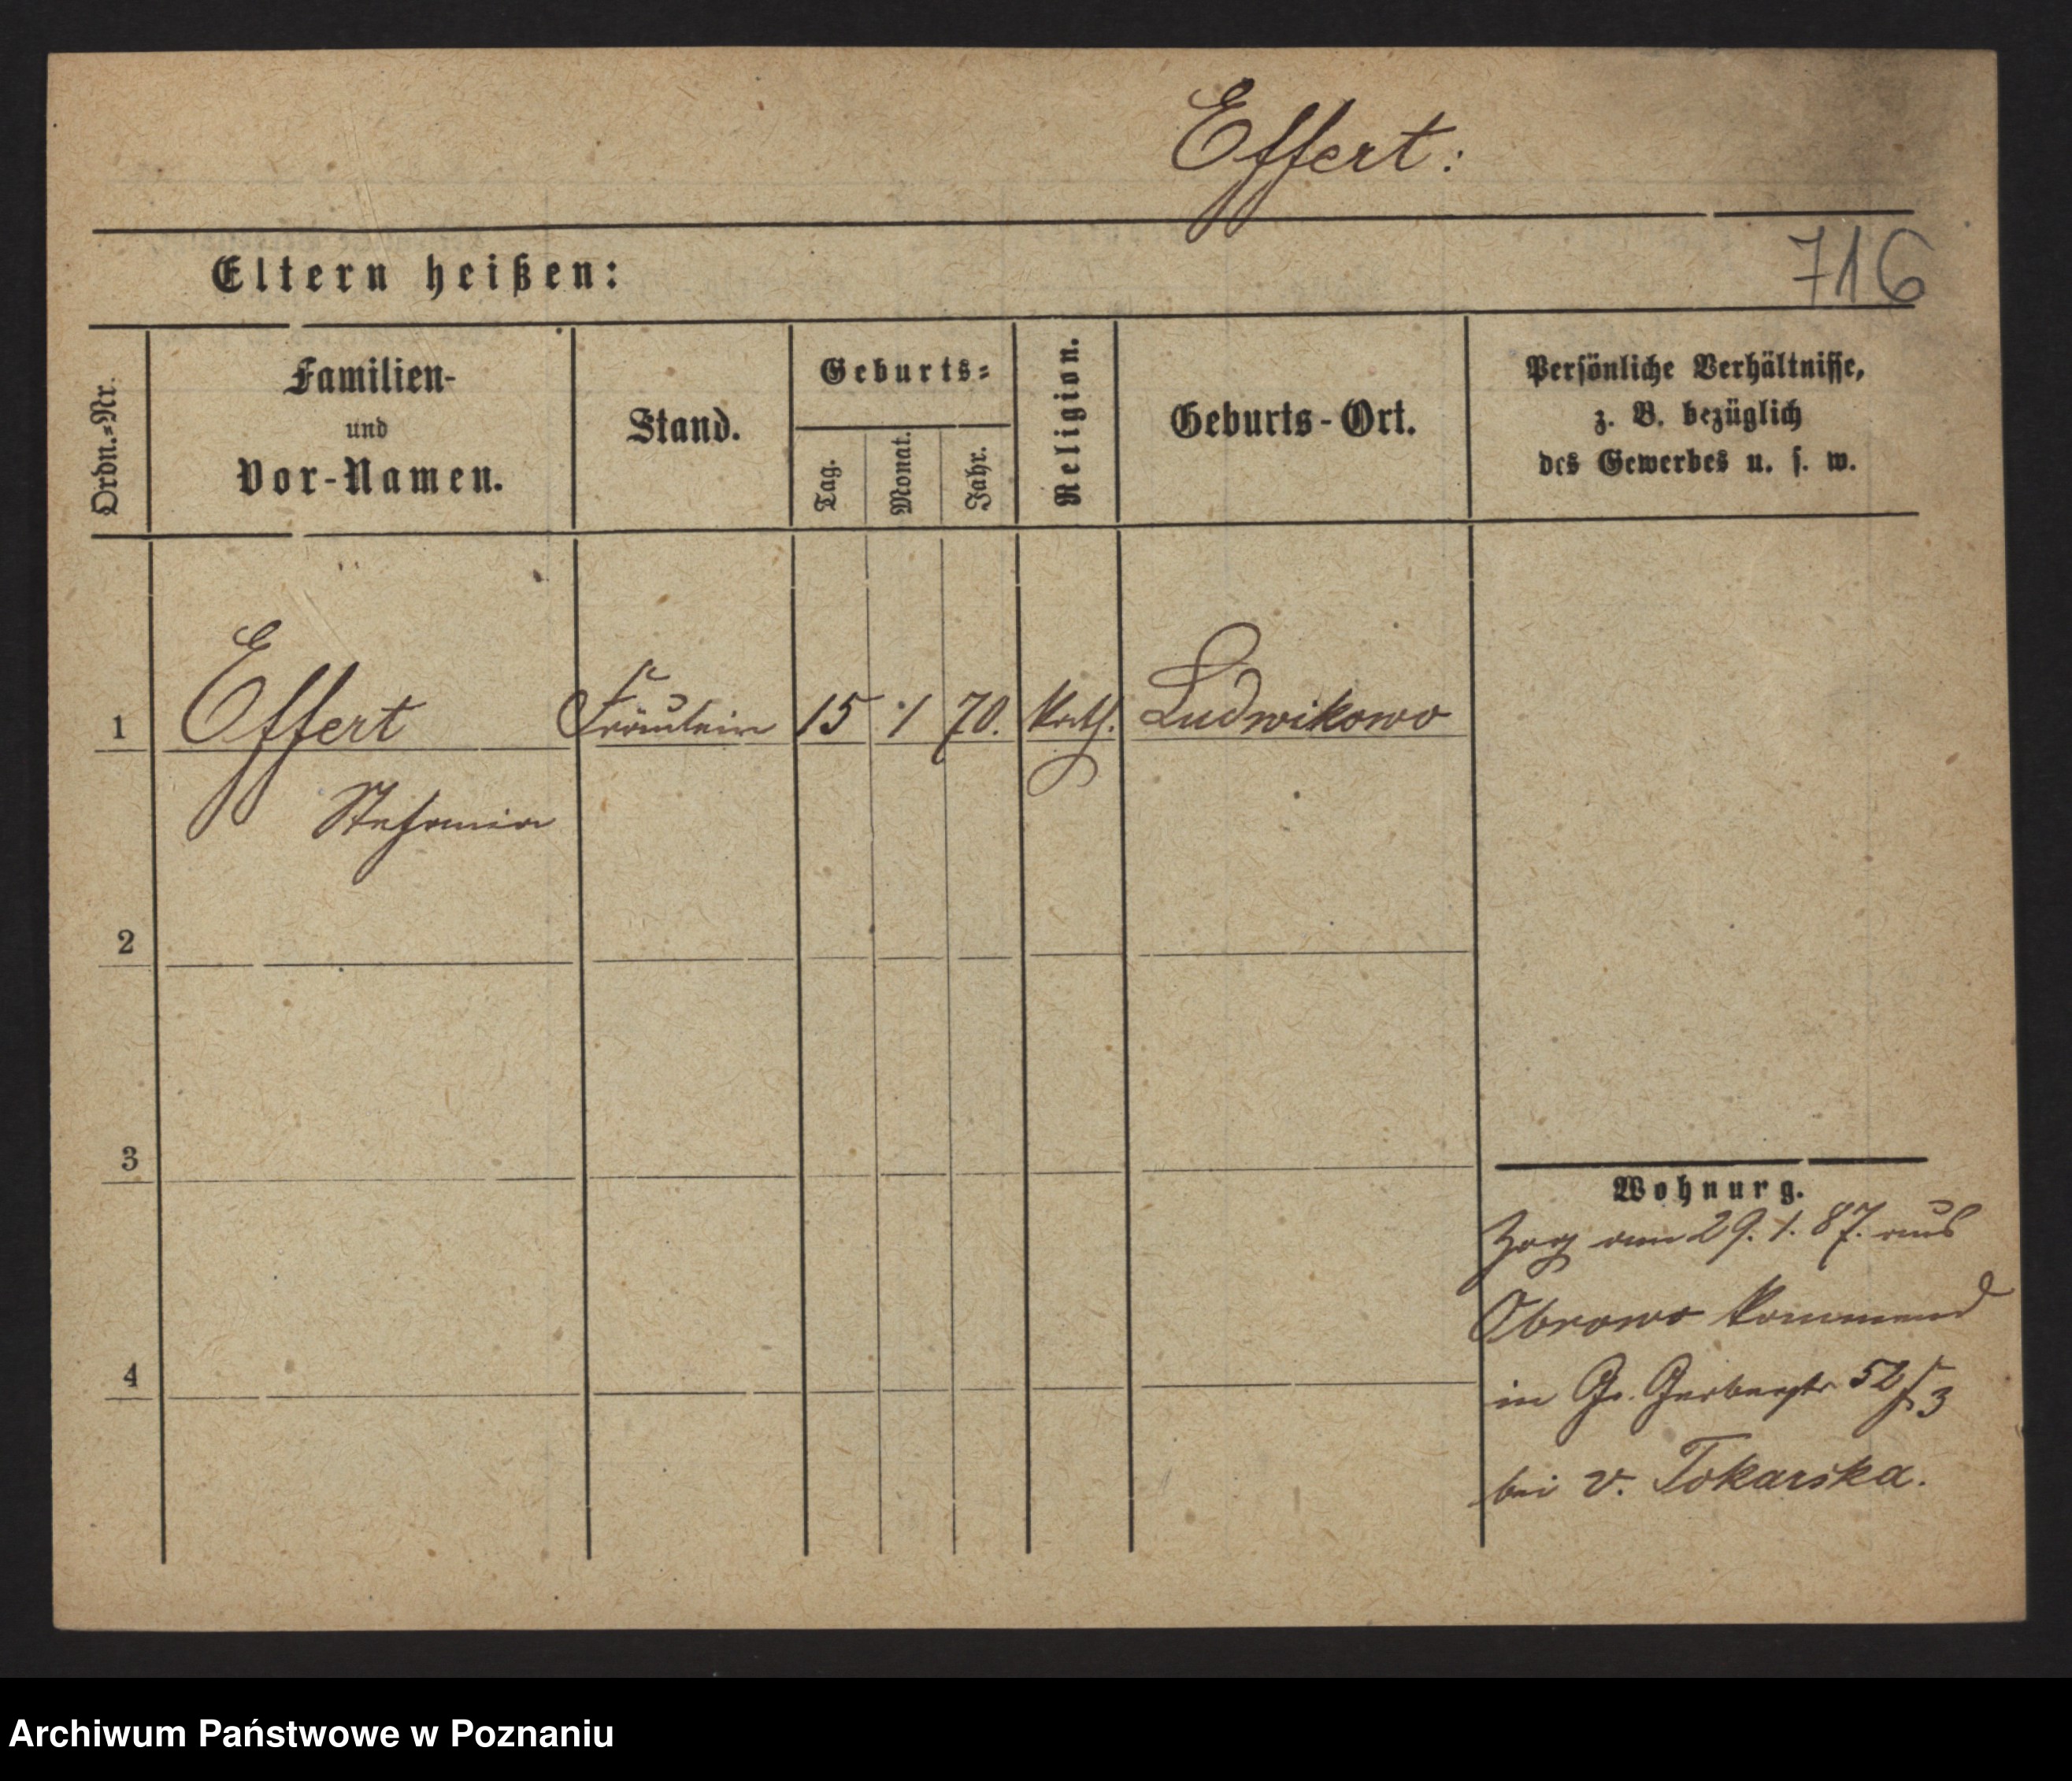 Effert:
Eltern heißen:
716
Ordn.=Nr.
Familien-
und
Vor-Namen.
Stand.
Geburts=
Tag.
Monat.
Jahr.
Religion.
Geburts-Ort.
Persönliche Verhältnisse,
z. B. bezüglich
des Gewerbes u. s. w.
1 Effert Fräulein 15 1 70. kath. Ludwikowo
Stefania
2
3
4
Wohnurg.
Zog am 29. 1. 87. aus
Obrowo kommend
in Gr. Gerberstr 52 3
bei v. Tokarska.
Archiwum Państwowe w Poznaniu